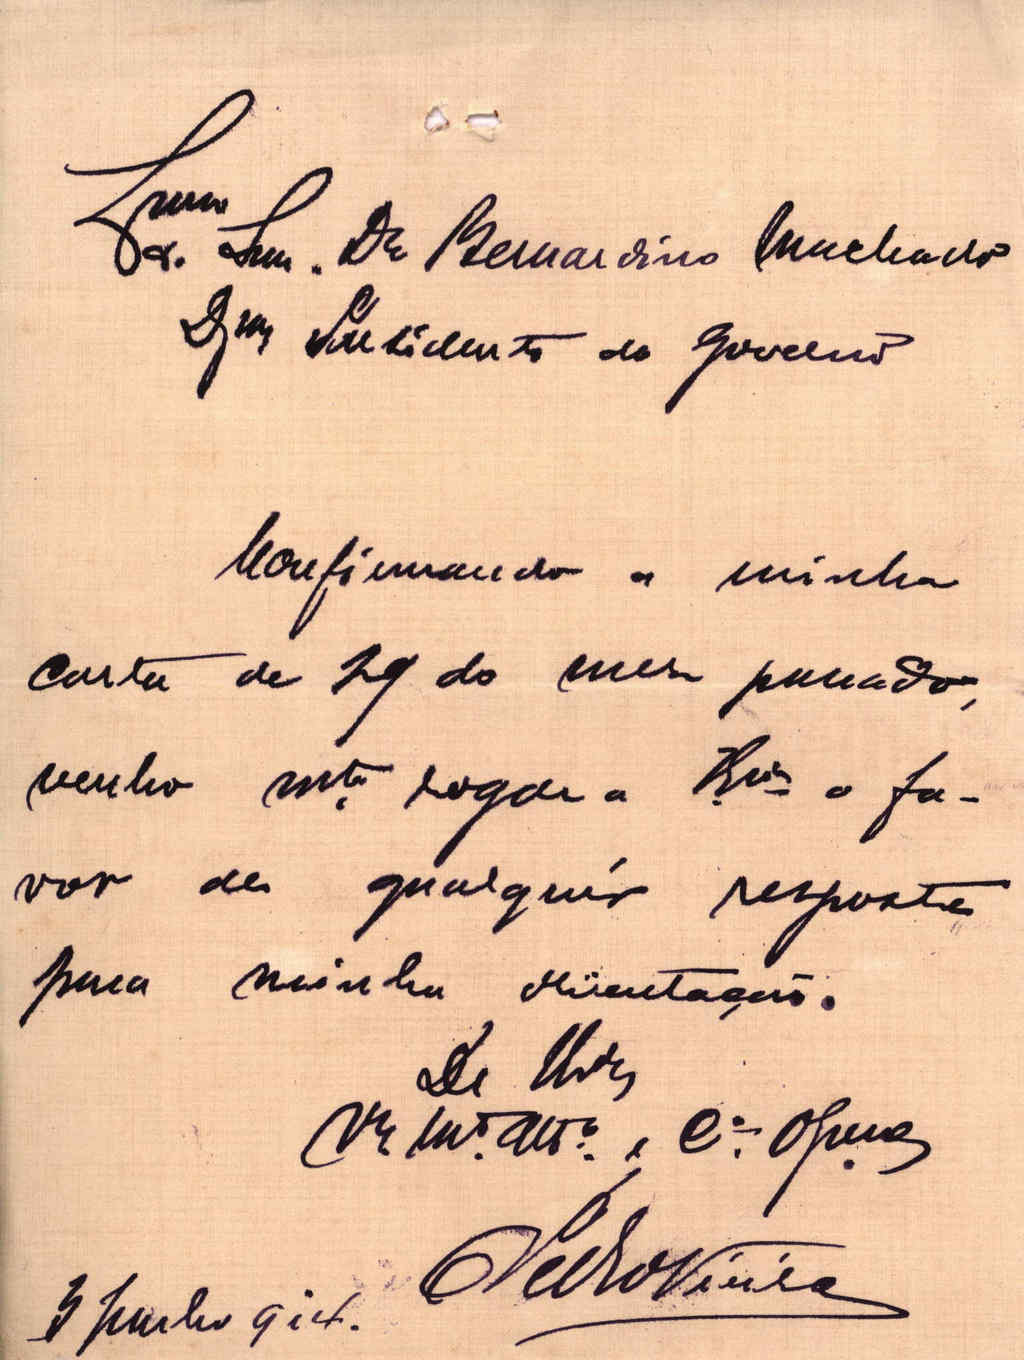 Exmo
Sr. Exmo. Dr Bernardino Machado
Dgmo Presidente do Governo
Confirmando a minha
carta de 29 do mez passado,
venho mto rogar a V.Exa o fa-
vor de qualquér resposta
para minha orientação.
De V.Exa
Mto. Atto. e C.o Obro
Pedro Vieira
3 Junho 914.